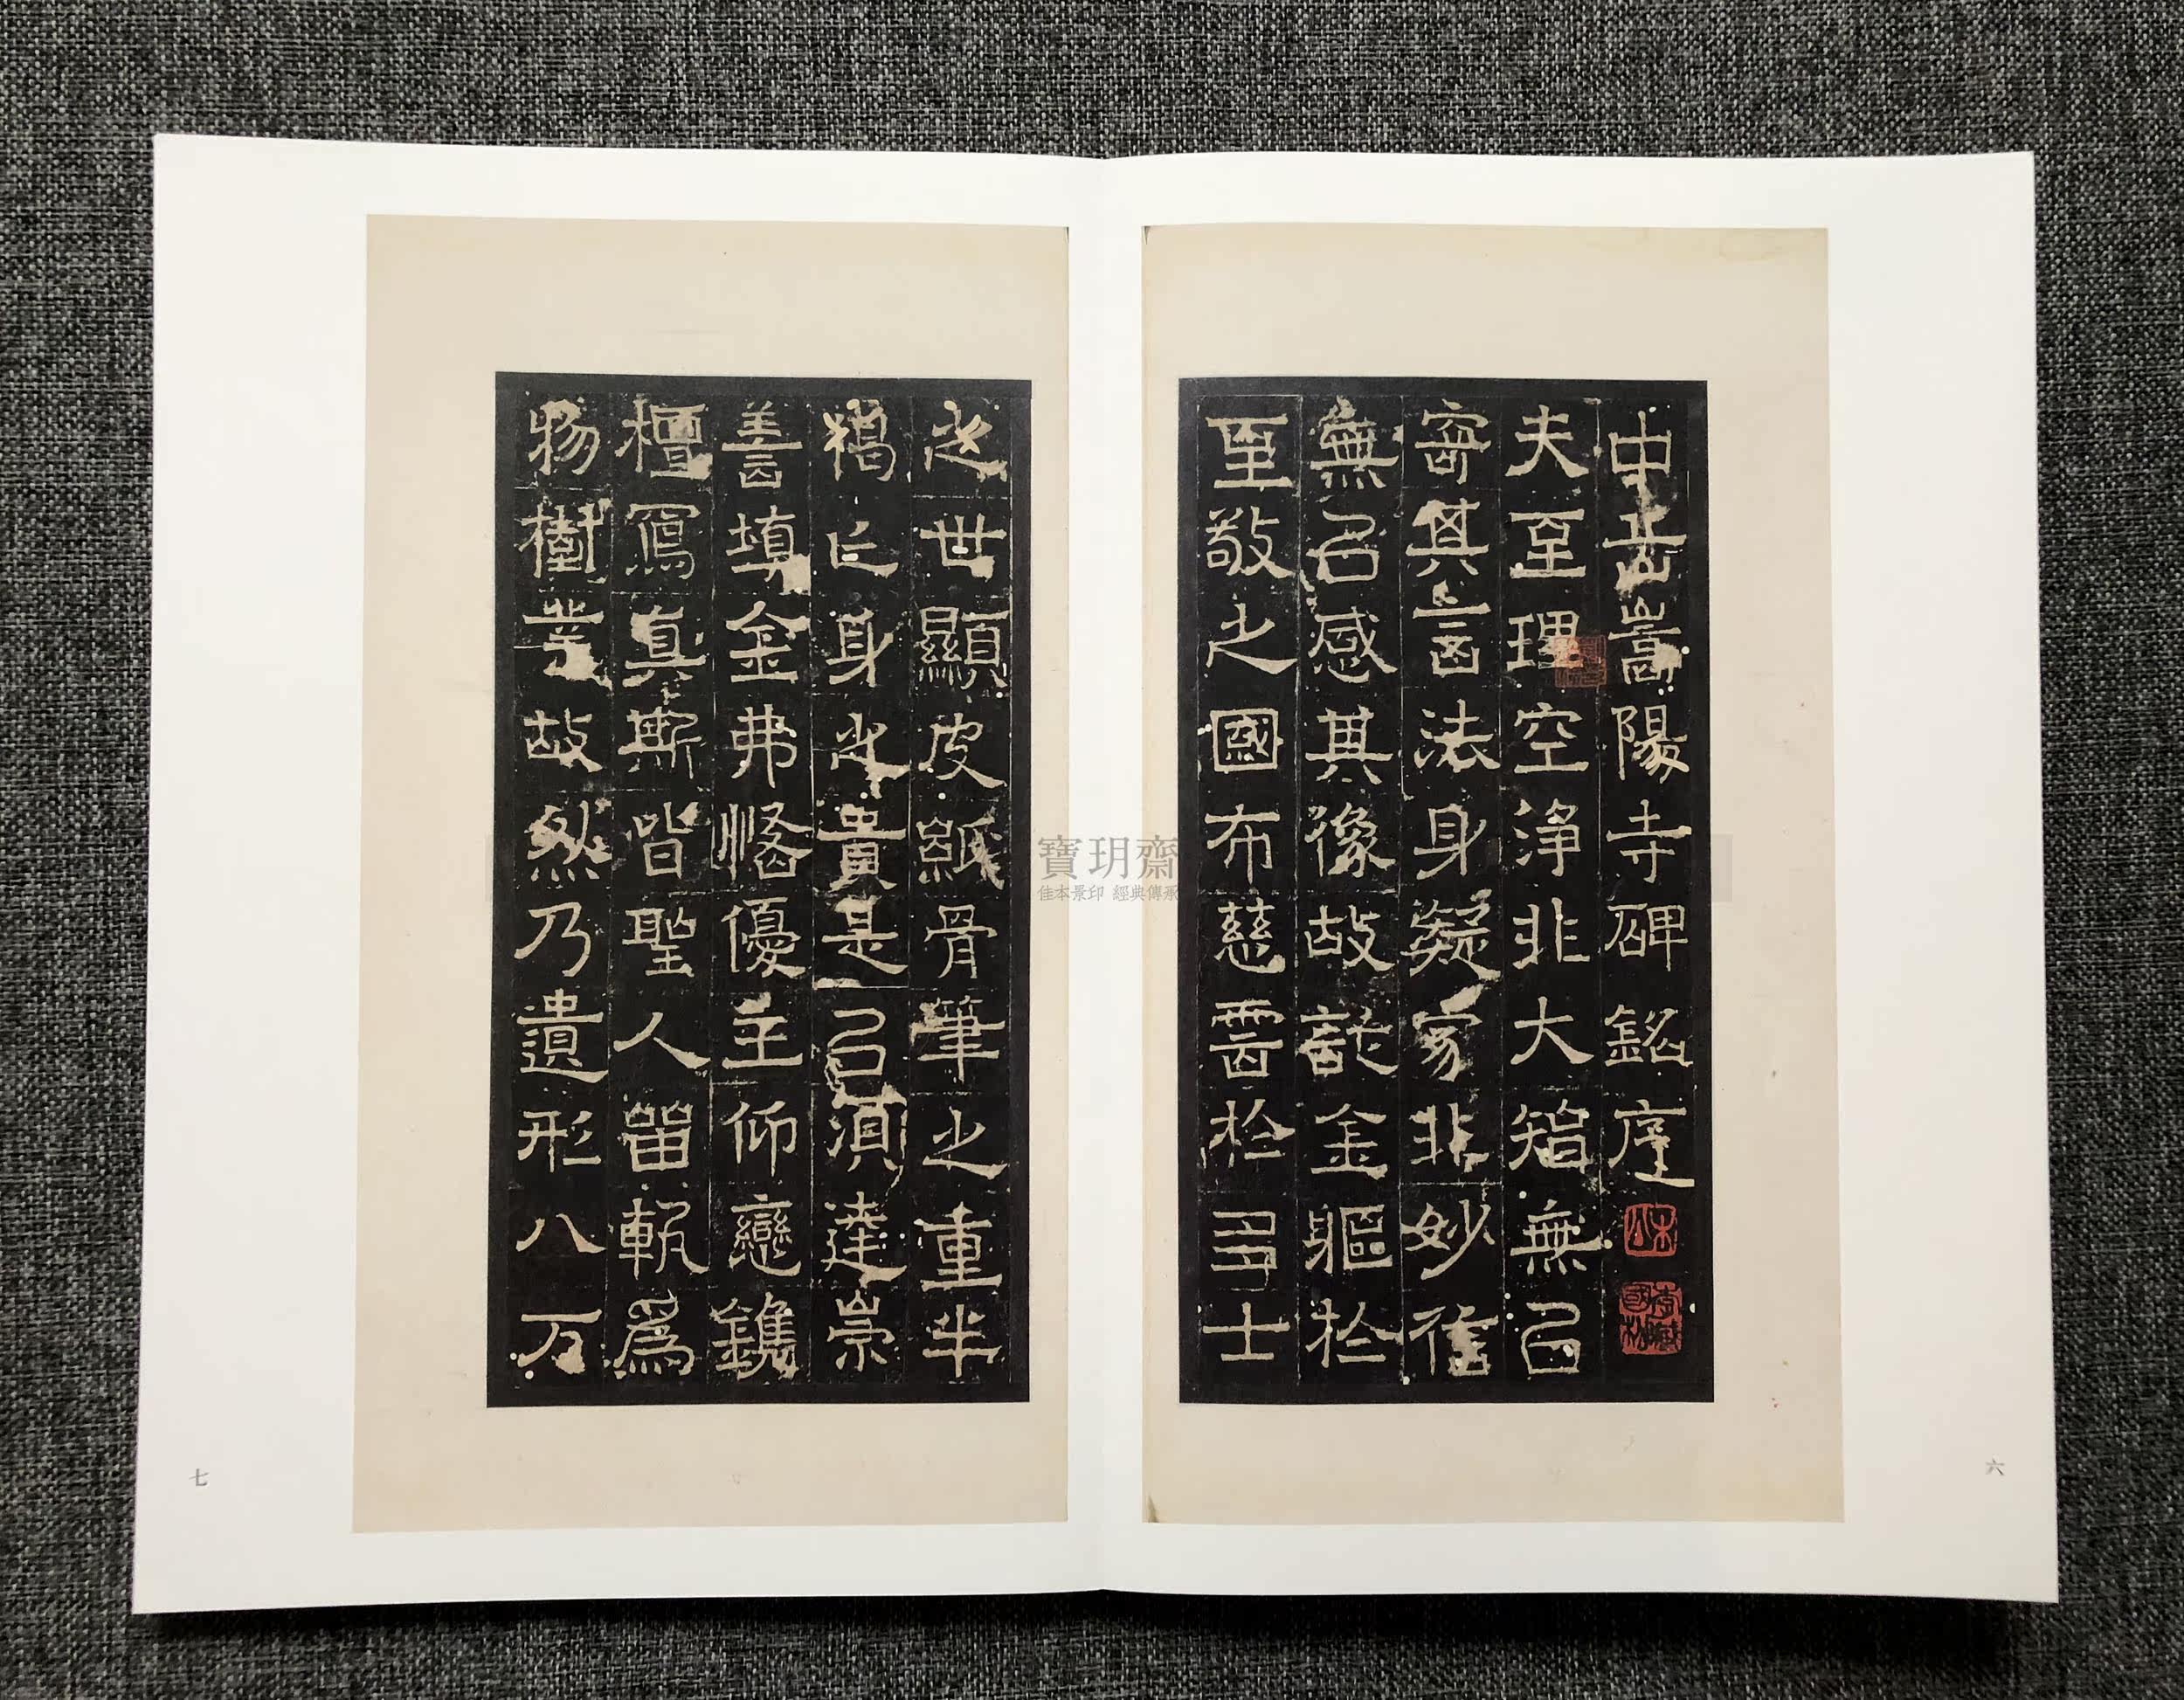 中岳嵩陽寺碑銘序
夫至理空淨非大智無以
寄其言法身凝寂非妙信
無以感其像故託金軀於
至敬之國布慈雲於多士
六
之世顯皮紙骨筆之重半
偈亡身之貴是以湏達崇
善填金弗悋優主仰戀鐫
檀寫真斯皆聖人留軌爲
物樹業故然乃遺形八万
七
寶玥齋
佳本景印 經典傳承